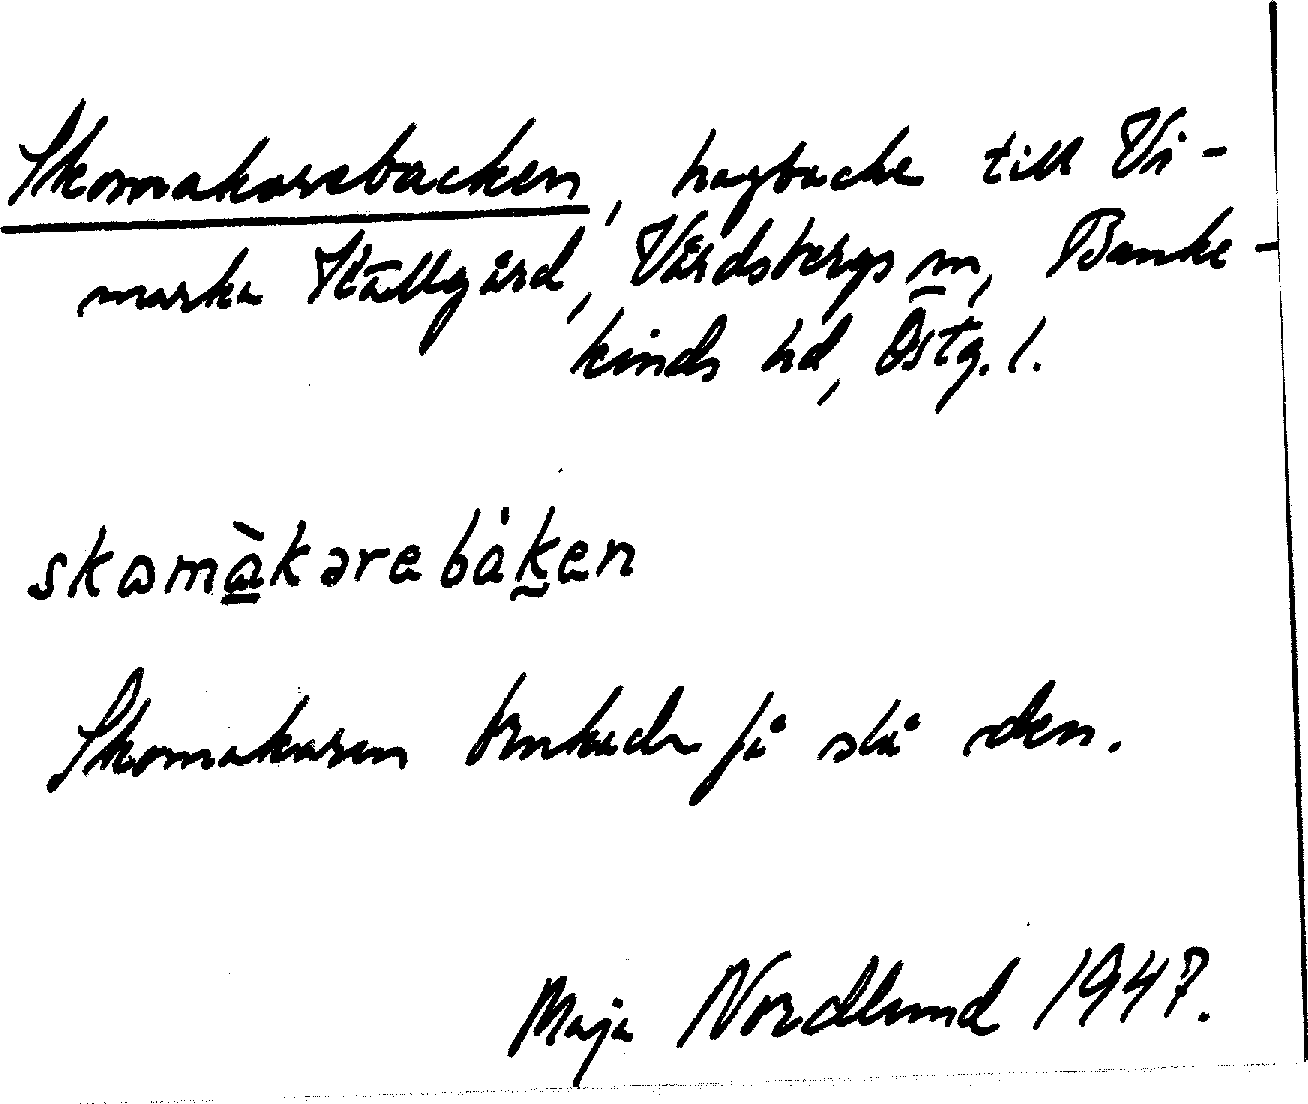 Skomakarebacken, hagbacke till Vi-
marka Källgård, Vårdsbergs sn, Banke-
kinds hd, Östg. l.
skomàkarebåken
Skomakaren brukade få slå den.
Maja Nordlund 1947.